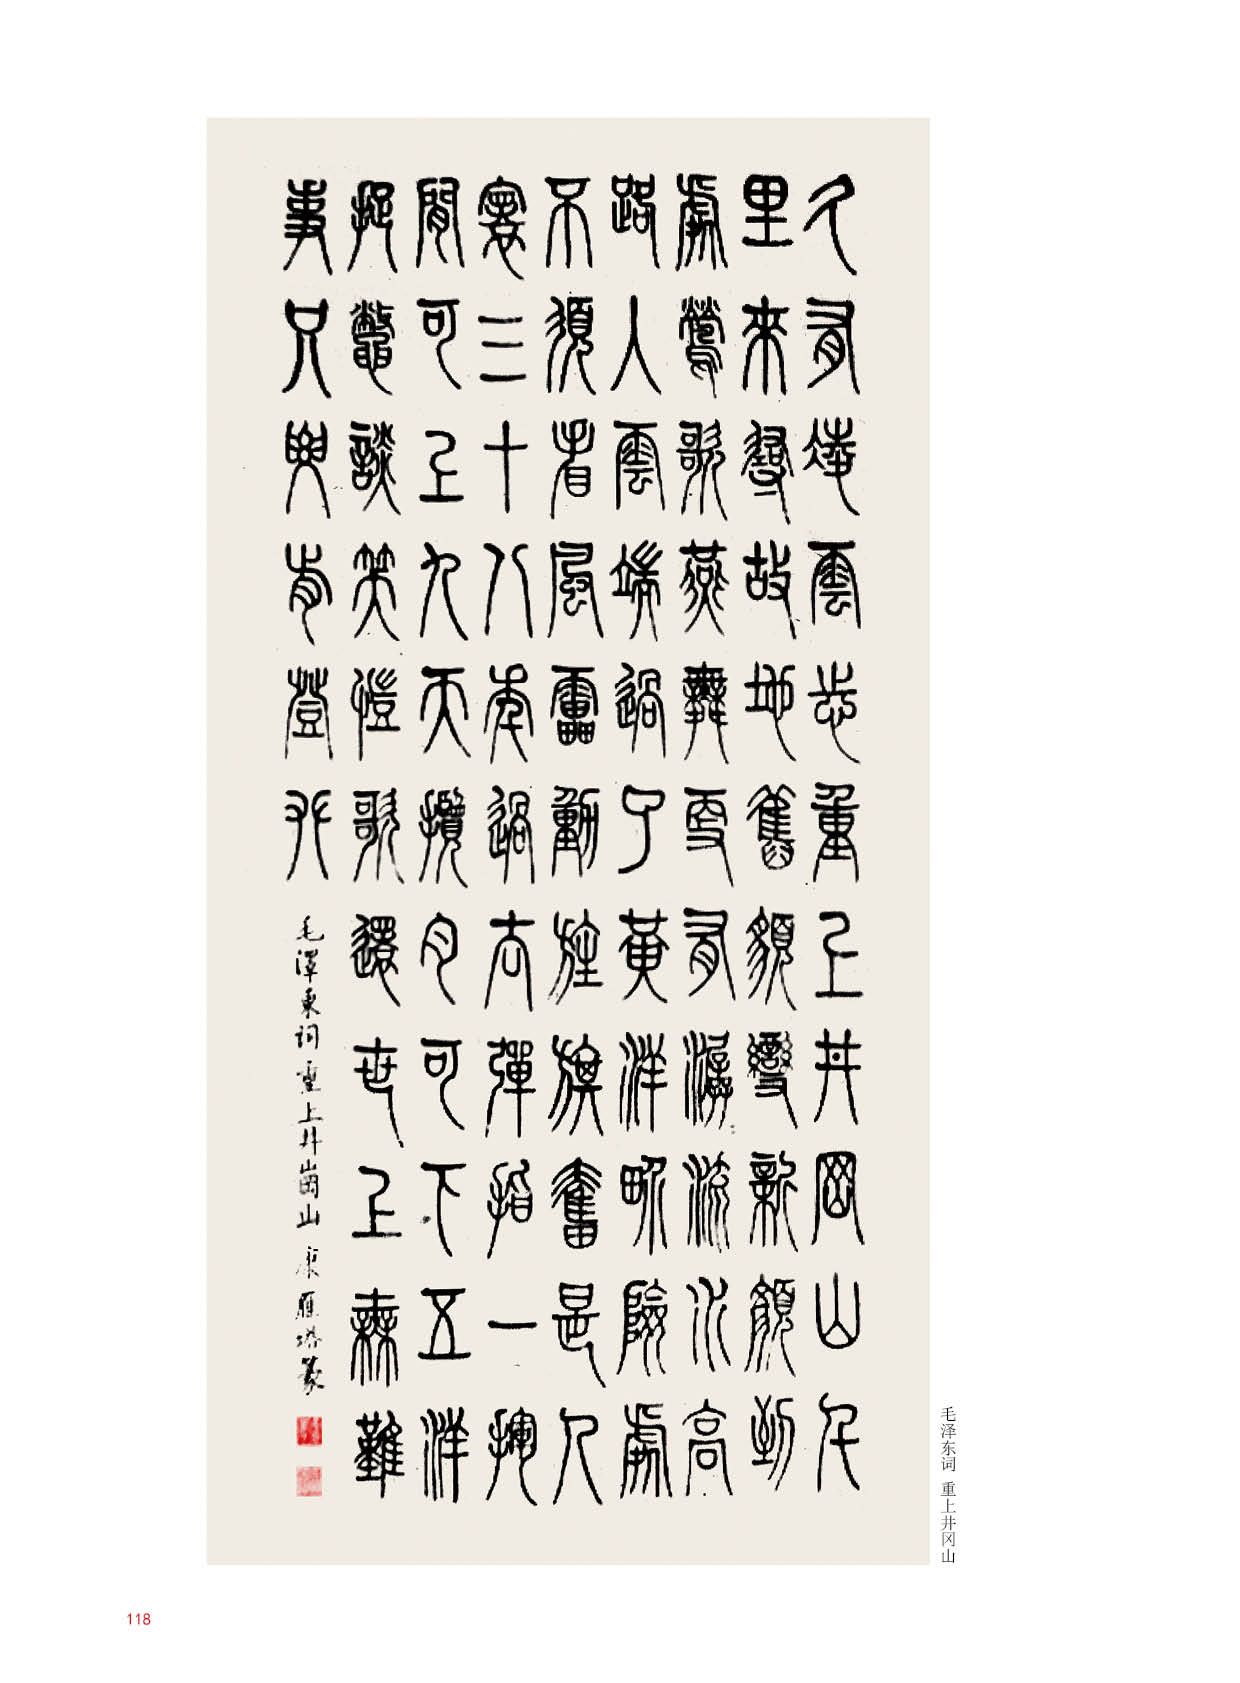 久有凌雲志重上井岡山千
里來尋故地舊貌變新顏到
處鶯歌燕舞更有潺〻流水高
路人雲端過了黃洋界險處
不須看風雷動旌旗奮是人
寰三十八年過去彈指一揮
間可上九天攬月可下五洋
捉鱉談笑凱歌還世上無難
事只要肯登攀
毛澤東詞重上井崗山 康雁塔篆
毛泽东词 重上井冈山
118